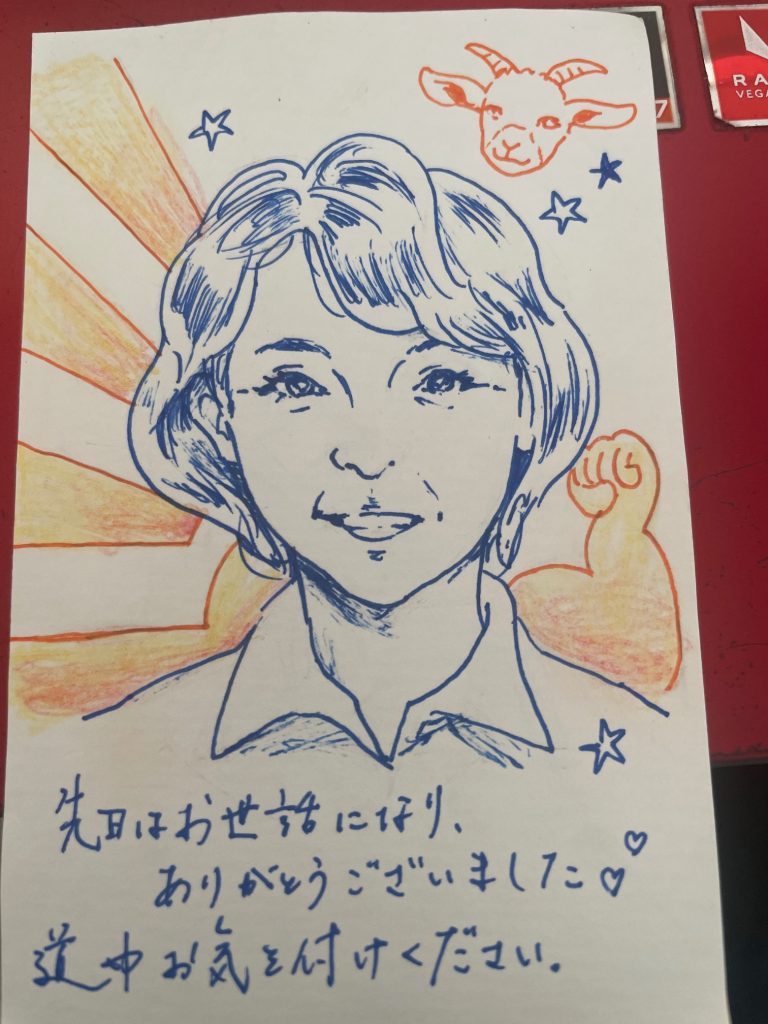 7
RA
VEGA
先日はお世話になり、
ありがとうございました♡♡
道中お気を付けください。